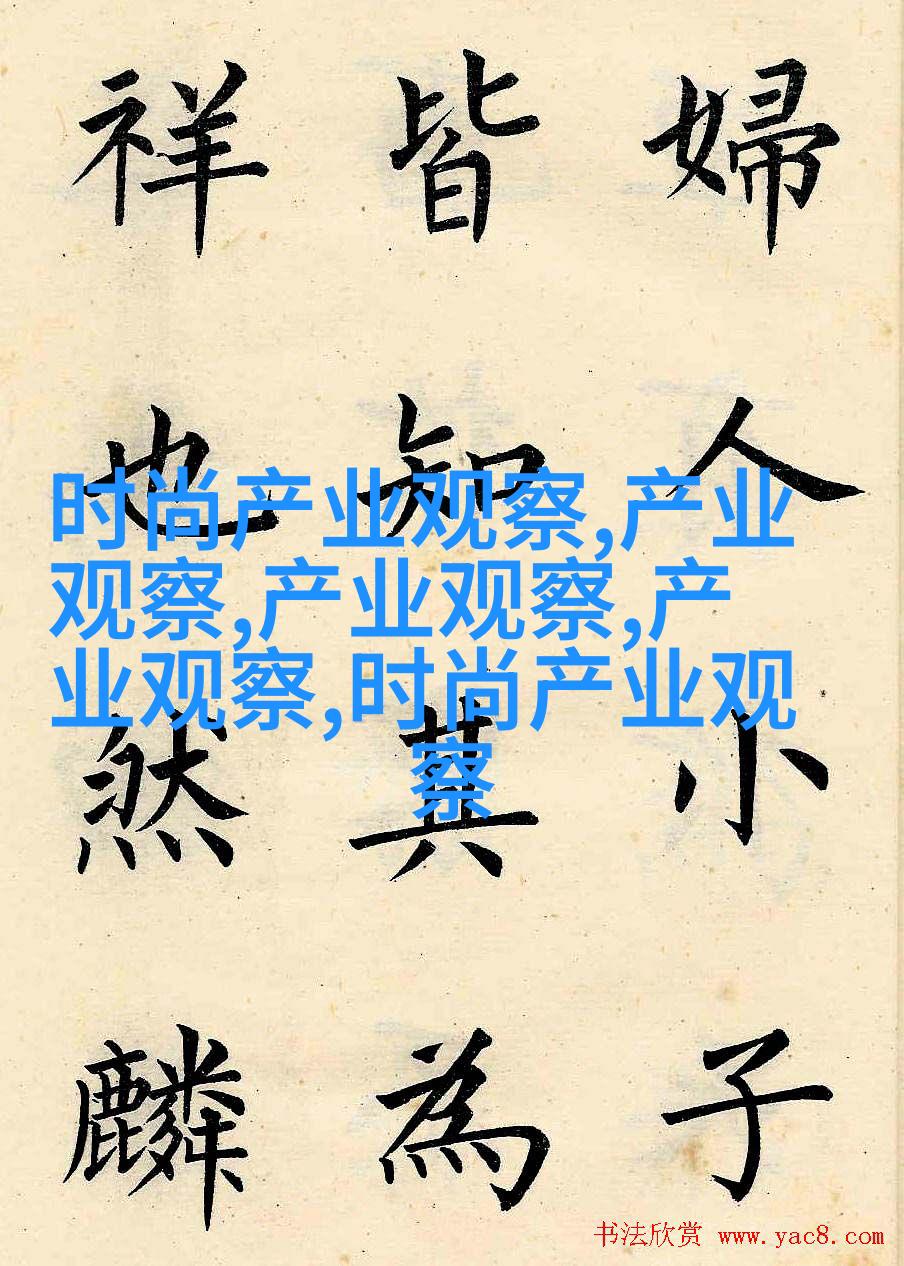 婦人小子
皆知其為
祥也然麟
时尚产业观察,产业
观察,产业观察,产
业观察,时尚产业观
察
书法欣赏 www.yac8.com